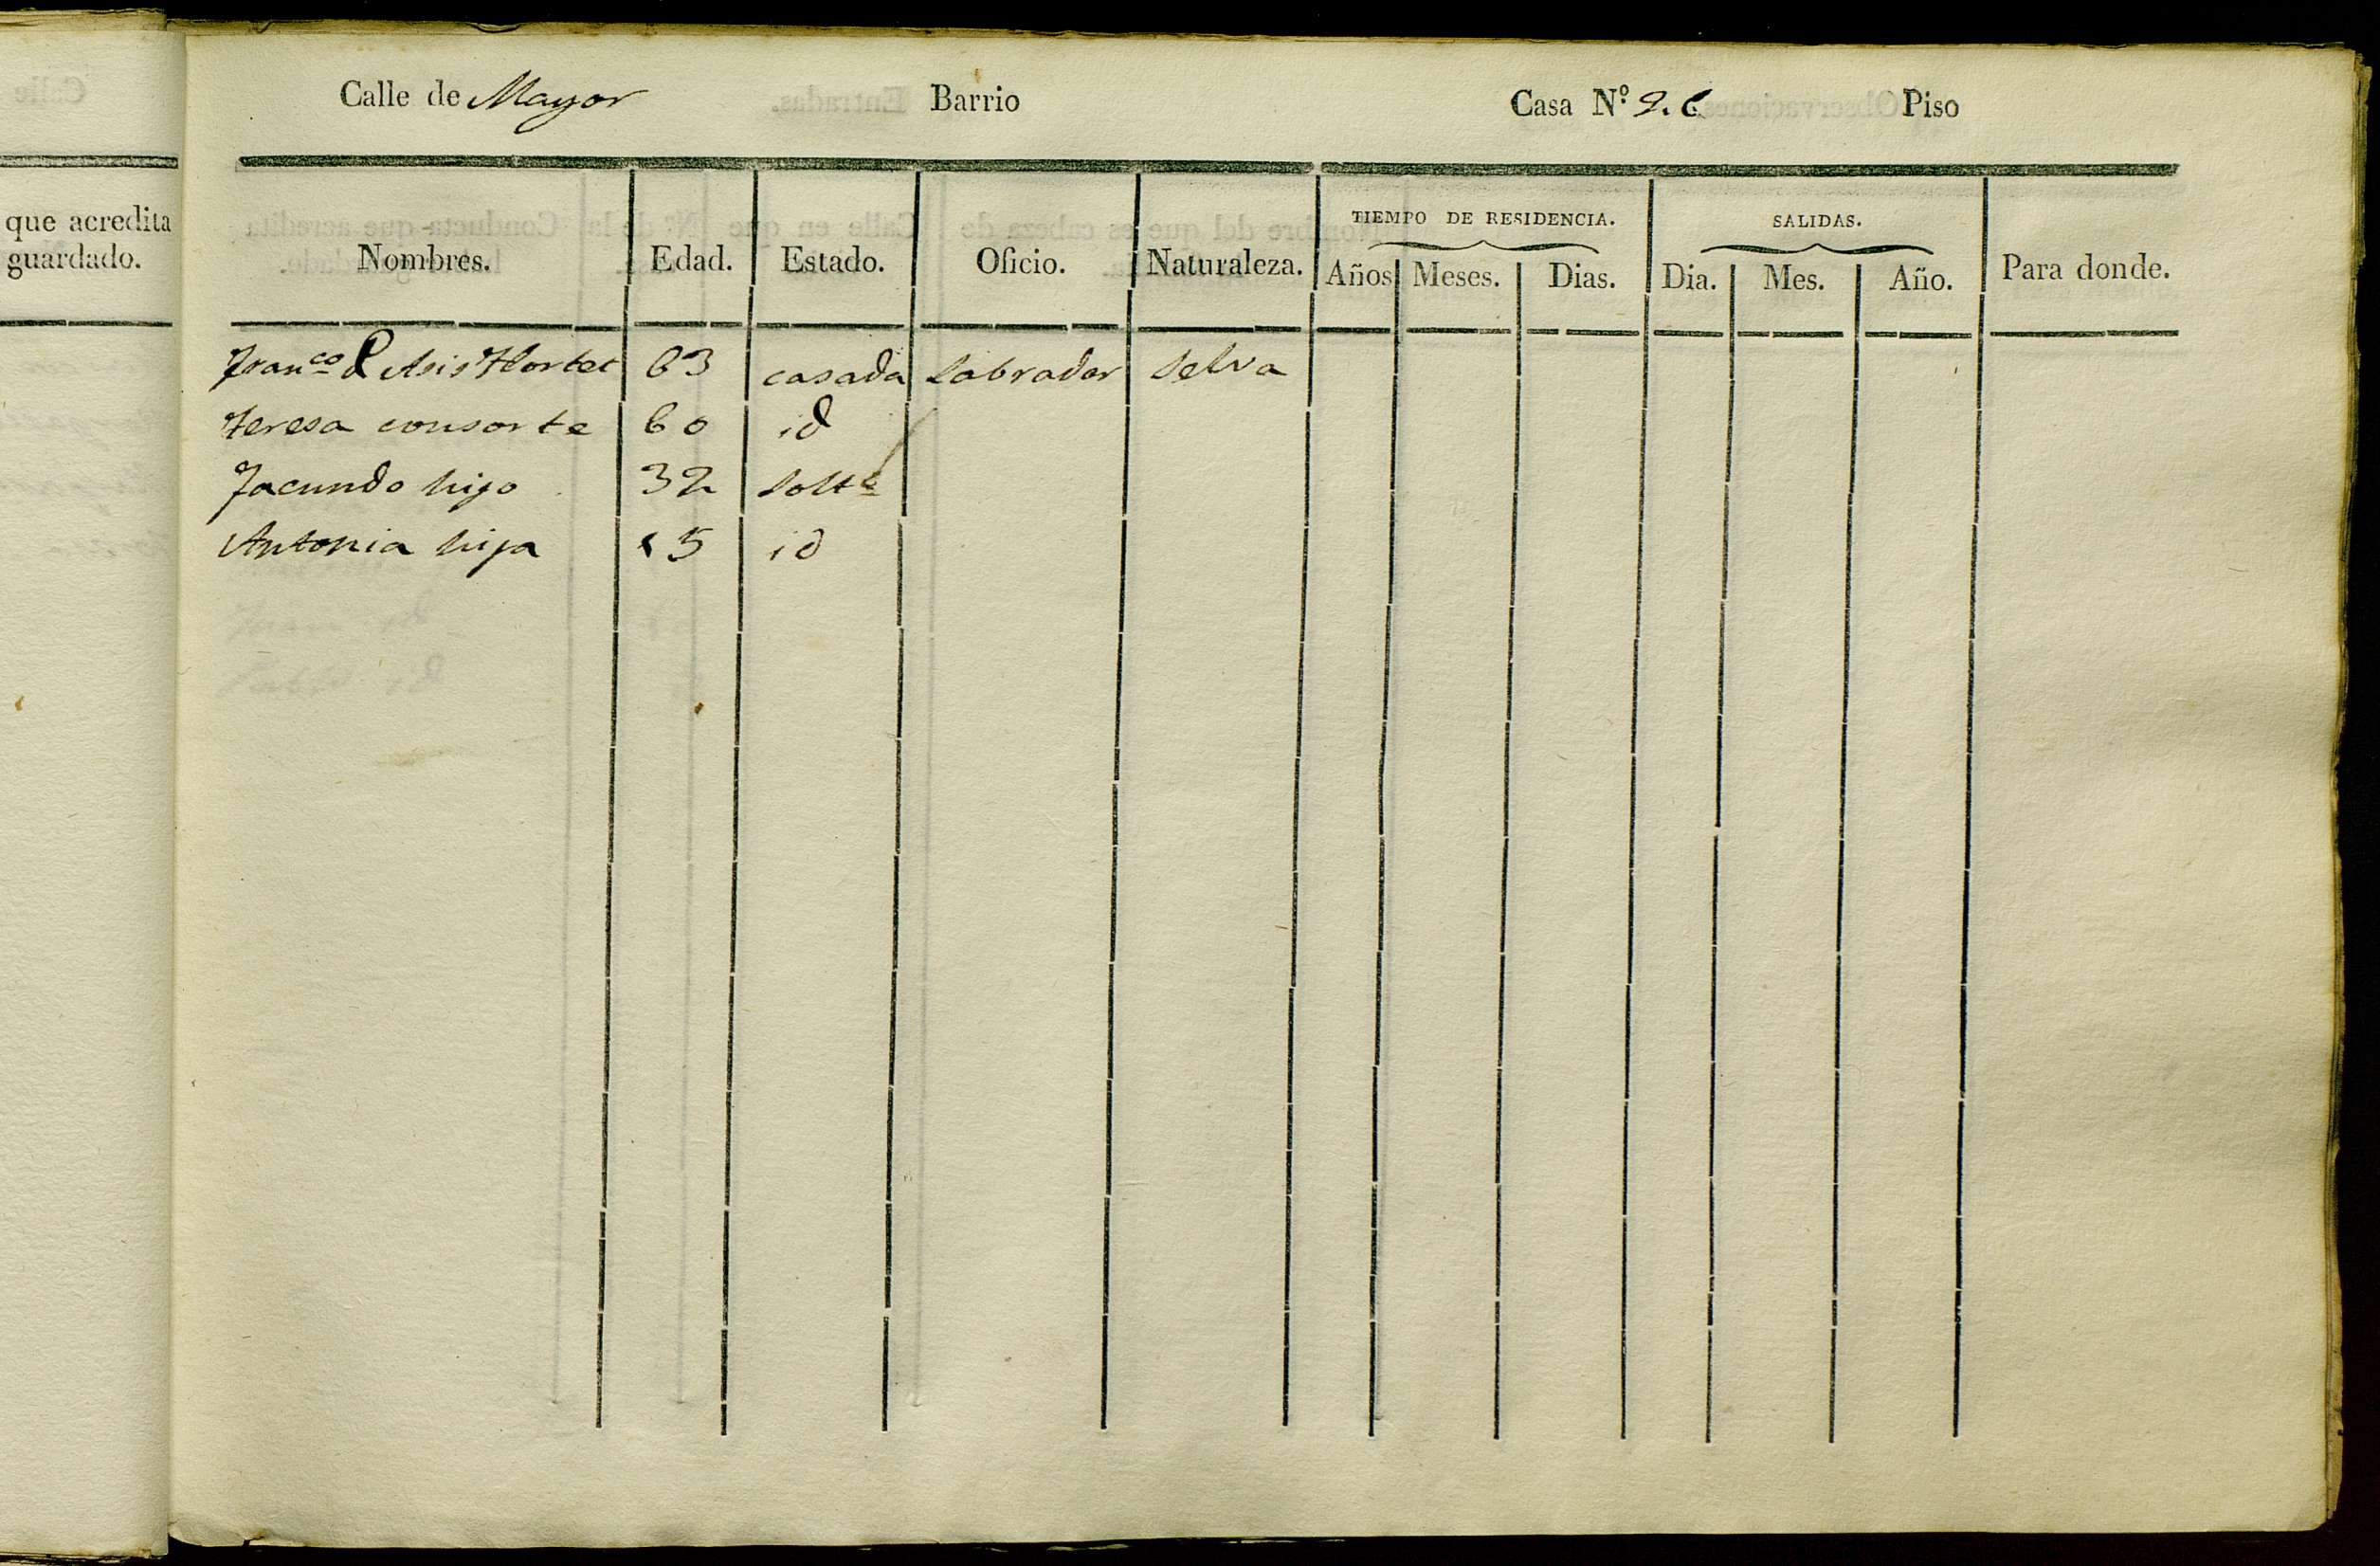 que acredita
guardado.
Calle de Mayor Barrio Casa Nº 26 Piso
Nombres. Edad. Estado. Oficio. Naturaleza. TIEMPO DE RESIDENCIA. Años Meses. Dias. SALIDAS. Dia. Mes. Año. Para donde.
Franco de Asis Hortet 63 casada Labrador Selva
Teresa consorte 60 id
Facundo hijo 32 soltº
Antonia hija 15 id